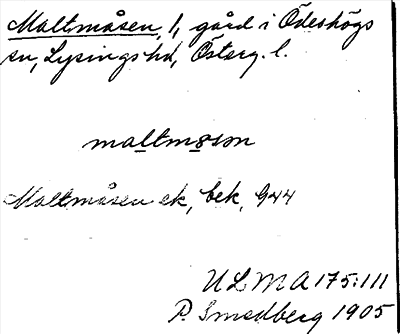 Maltmåsen, 1, gård i Ödeshögs
sn, Lysings hd, Österg. l.
maltmɵsɵn
Maltmåsen ek, bek, 944
ULMA 175:111
P. Smedberg 1905